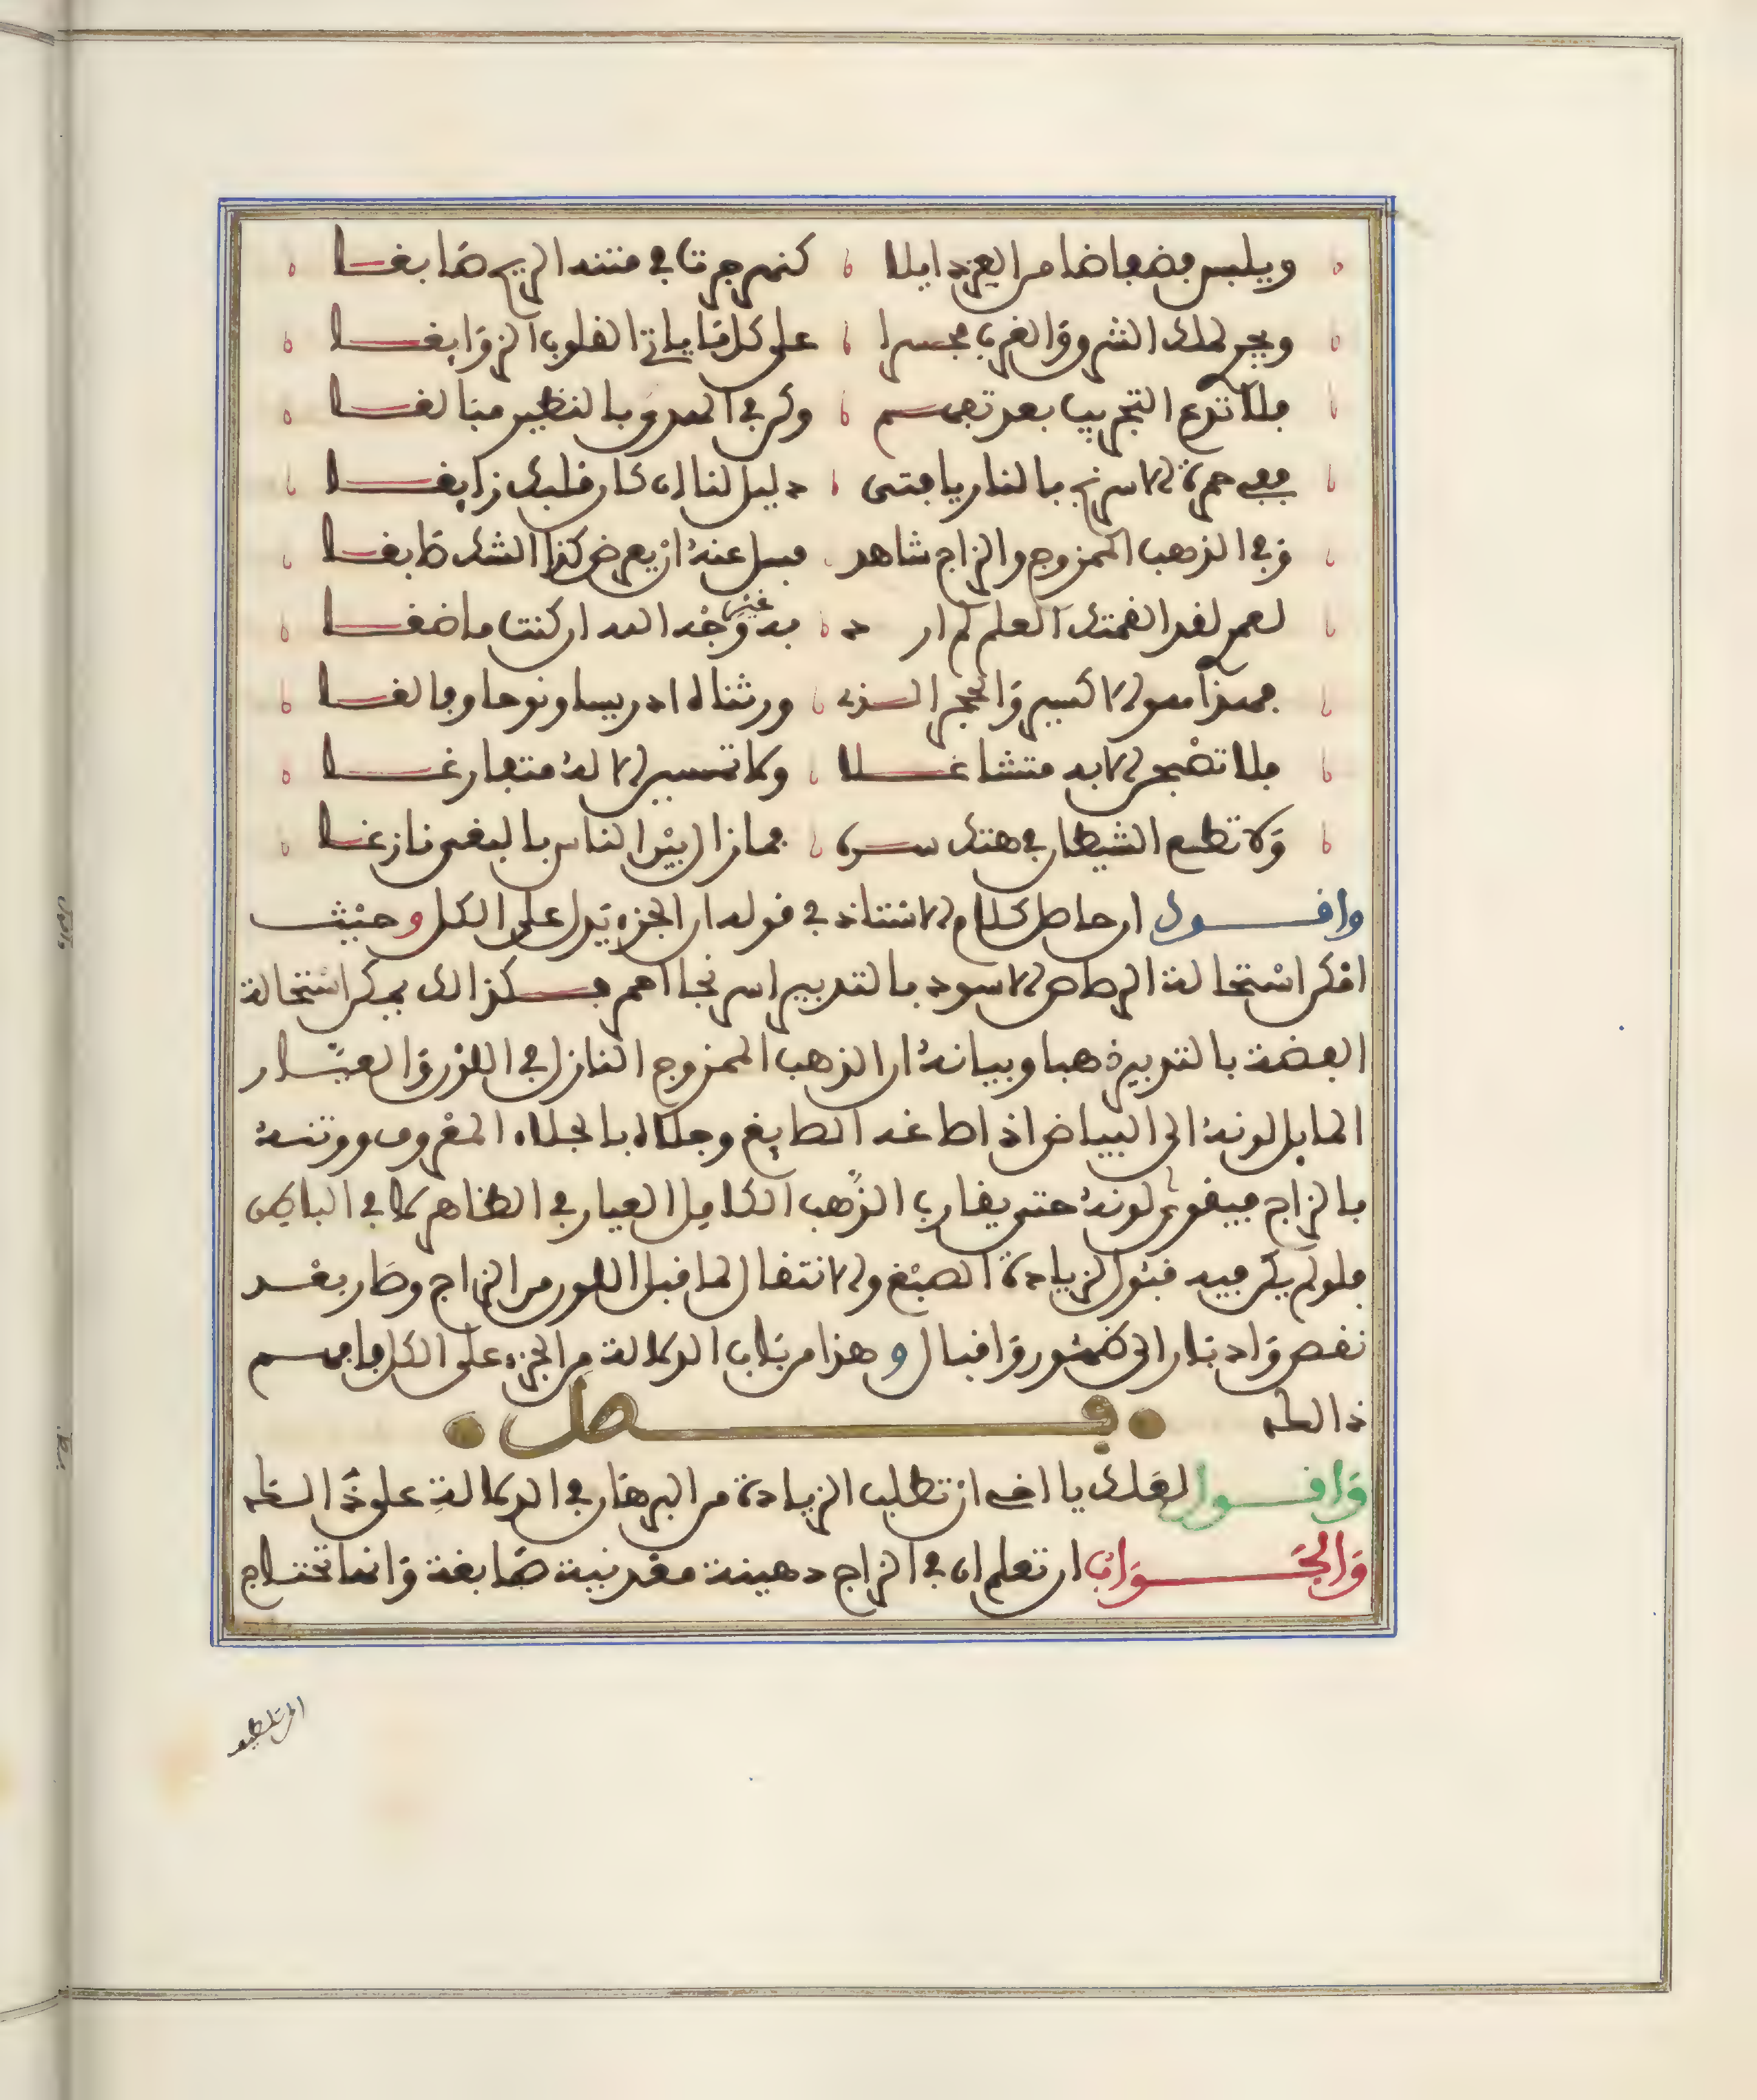 ويلبس فضفاضا من العز ذايلا كنهر جرتا في متنه الريح صابغا
ويجر لملك الشرق والغرب مجسرا على كل ما ياتي القلوب الزوايغا
فلا تدع التجريب بعد تفهم وكن في المدى بالنظير مبالغا
ففي حمرة الاسرنج بالنار يا فتى دليل لنا ان كان قلبك زايغا
وفي الذهب الممزوج والزاج شاهد فسل عنه ان يعرض كذا الشك طابغا
لعمر لقد الفمتك العلم لم ار د به غير وجه الله ان كنت ماضغا
فهذا هو الاكسير والحجر الذي ورثناه ادريسا ونوحا وفالغا
فلا تضحى الا به متشاغلا ولا تمسين الا له متفارغا
ولا تطع الشيطان في هتك سره فما زال بين الناس بالبغى نازغا
واقول ان حاصل كلام الاستاذ في قوله ان الجزء يدل على الكل وحيث
امكن استحالة الرصاص الاسود بالتدبير اسرنجا احمر فكذالك يمكن استحالة
الفضة بالتدبير ذهبا وبيانه ان الذهب الممزوج النازل في اللون والعيار
المايل لونه الى البياض اذا طاغه الصايغ وجلاه بالجلاء المعروف ووتنه
بالزاج فيقوى لونه حتى يقارب الذهب الكامل العيار في الظاهر لا في الباطن
فلو لم يكن فيه قبول لزيادة الصبغ والانتقال لما قبل اللون من الزاج وصار بعد
نقص وادبار الى ظهور واقبال وهذا من باب الدلالة من الجزء على الكل فافهم
ذالك
فصل
واقول لعلك يا اخي ان تطلب الزيادة من البرهان في الدلالة على ذالك
والجواب ان تعلم ان في الزاج دهينة معدنية صابغة وانما تحتاج